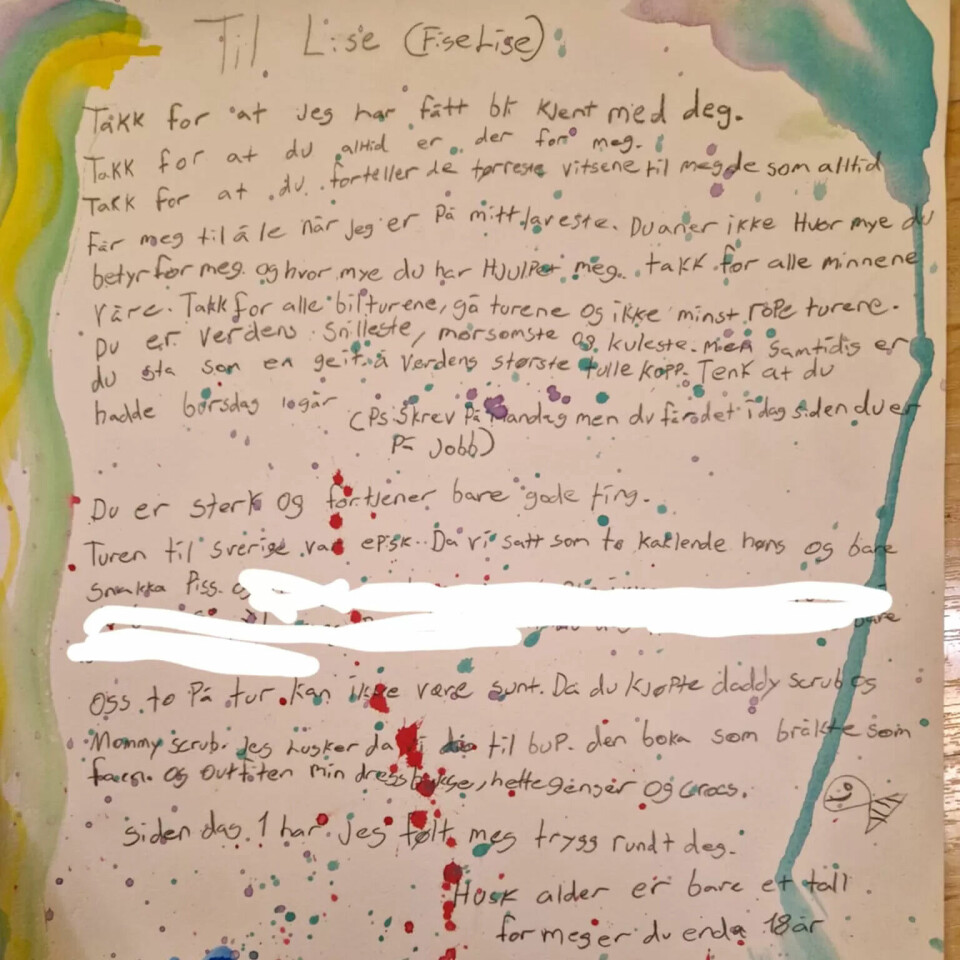 Til Lise (FiseLise)
Takk for at jeg har fått bli kjent med deg.
Takk for at du alltid er der for meg.
Takk for at du forteller de tørreste vitsene til meg de som alltid
Får meg til å le når jeg er på mitt laveste. Du aner ikke Hvor mye du
betyr for meg og hvor mye du har Hjulpet meg. takk for alle minnene
våre. Takk for alle bilturene, gå turene og ikke minst rope turene.
Du er verdens snilleste, morsomste og kuleste. men samtidig er
du sta som en geit å verdens største tulle kopp. Tenk at du
hadde børsdag igår (Ps: Skrev på Mandag men du får det i dag siden du er
På Jobb)
Du er sterk og fortjener bare gode ting.
Turen til sverige var episk. Da vi satt som to kaklende høns og bare
snakka Piss. og
bare
Oss to På tur kan ikke være sunt. Da du kjøpte daddy scrub og
Mommy scrub. Jeg husker da vi til BUP. den boka som bråkte som
faen. og outfiten min dressbukse, hettegenser og crocs.
Siden dag 1 har jeg følt meg trygg rundt deg.
Husk alder er bare et tall
for meg er du enda 18 år